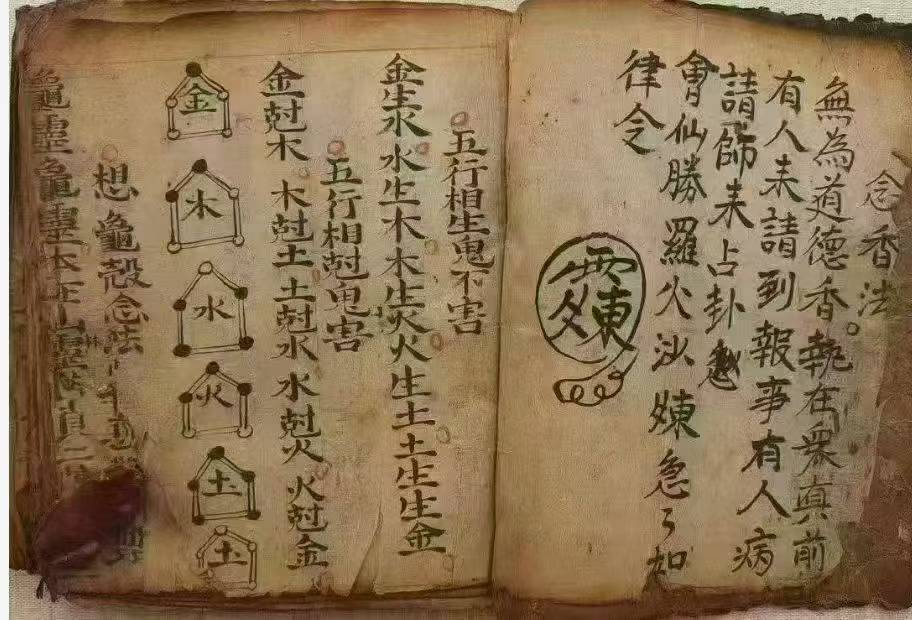 念香法
無為道德香執在衆真前
有人来請到報事有人病
請師来占卦
會仙勝羅火沙 急々如
律令
五行相生鬼不害
金生水 水生木 木生火 火生土 土生生金
五行相尅鬼害
金尅木 木尅土 土尅水 水尅火 火尅金
金
木
水
火
土
土
想龜殼念法
龜靈龜靈本在山